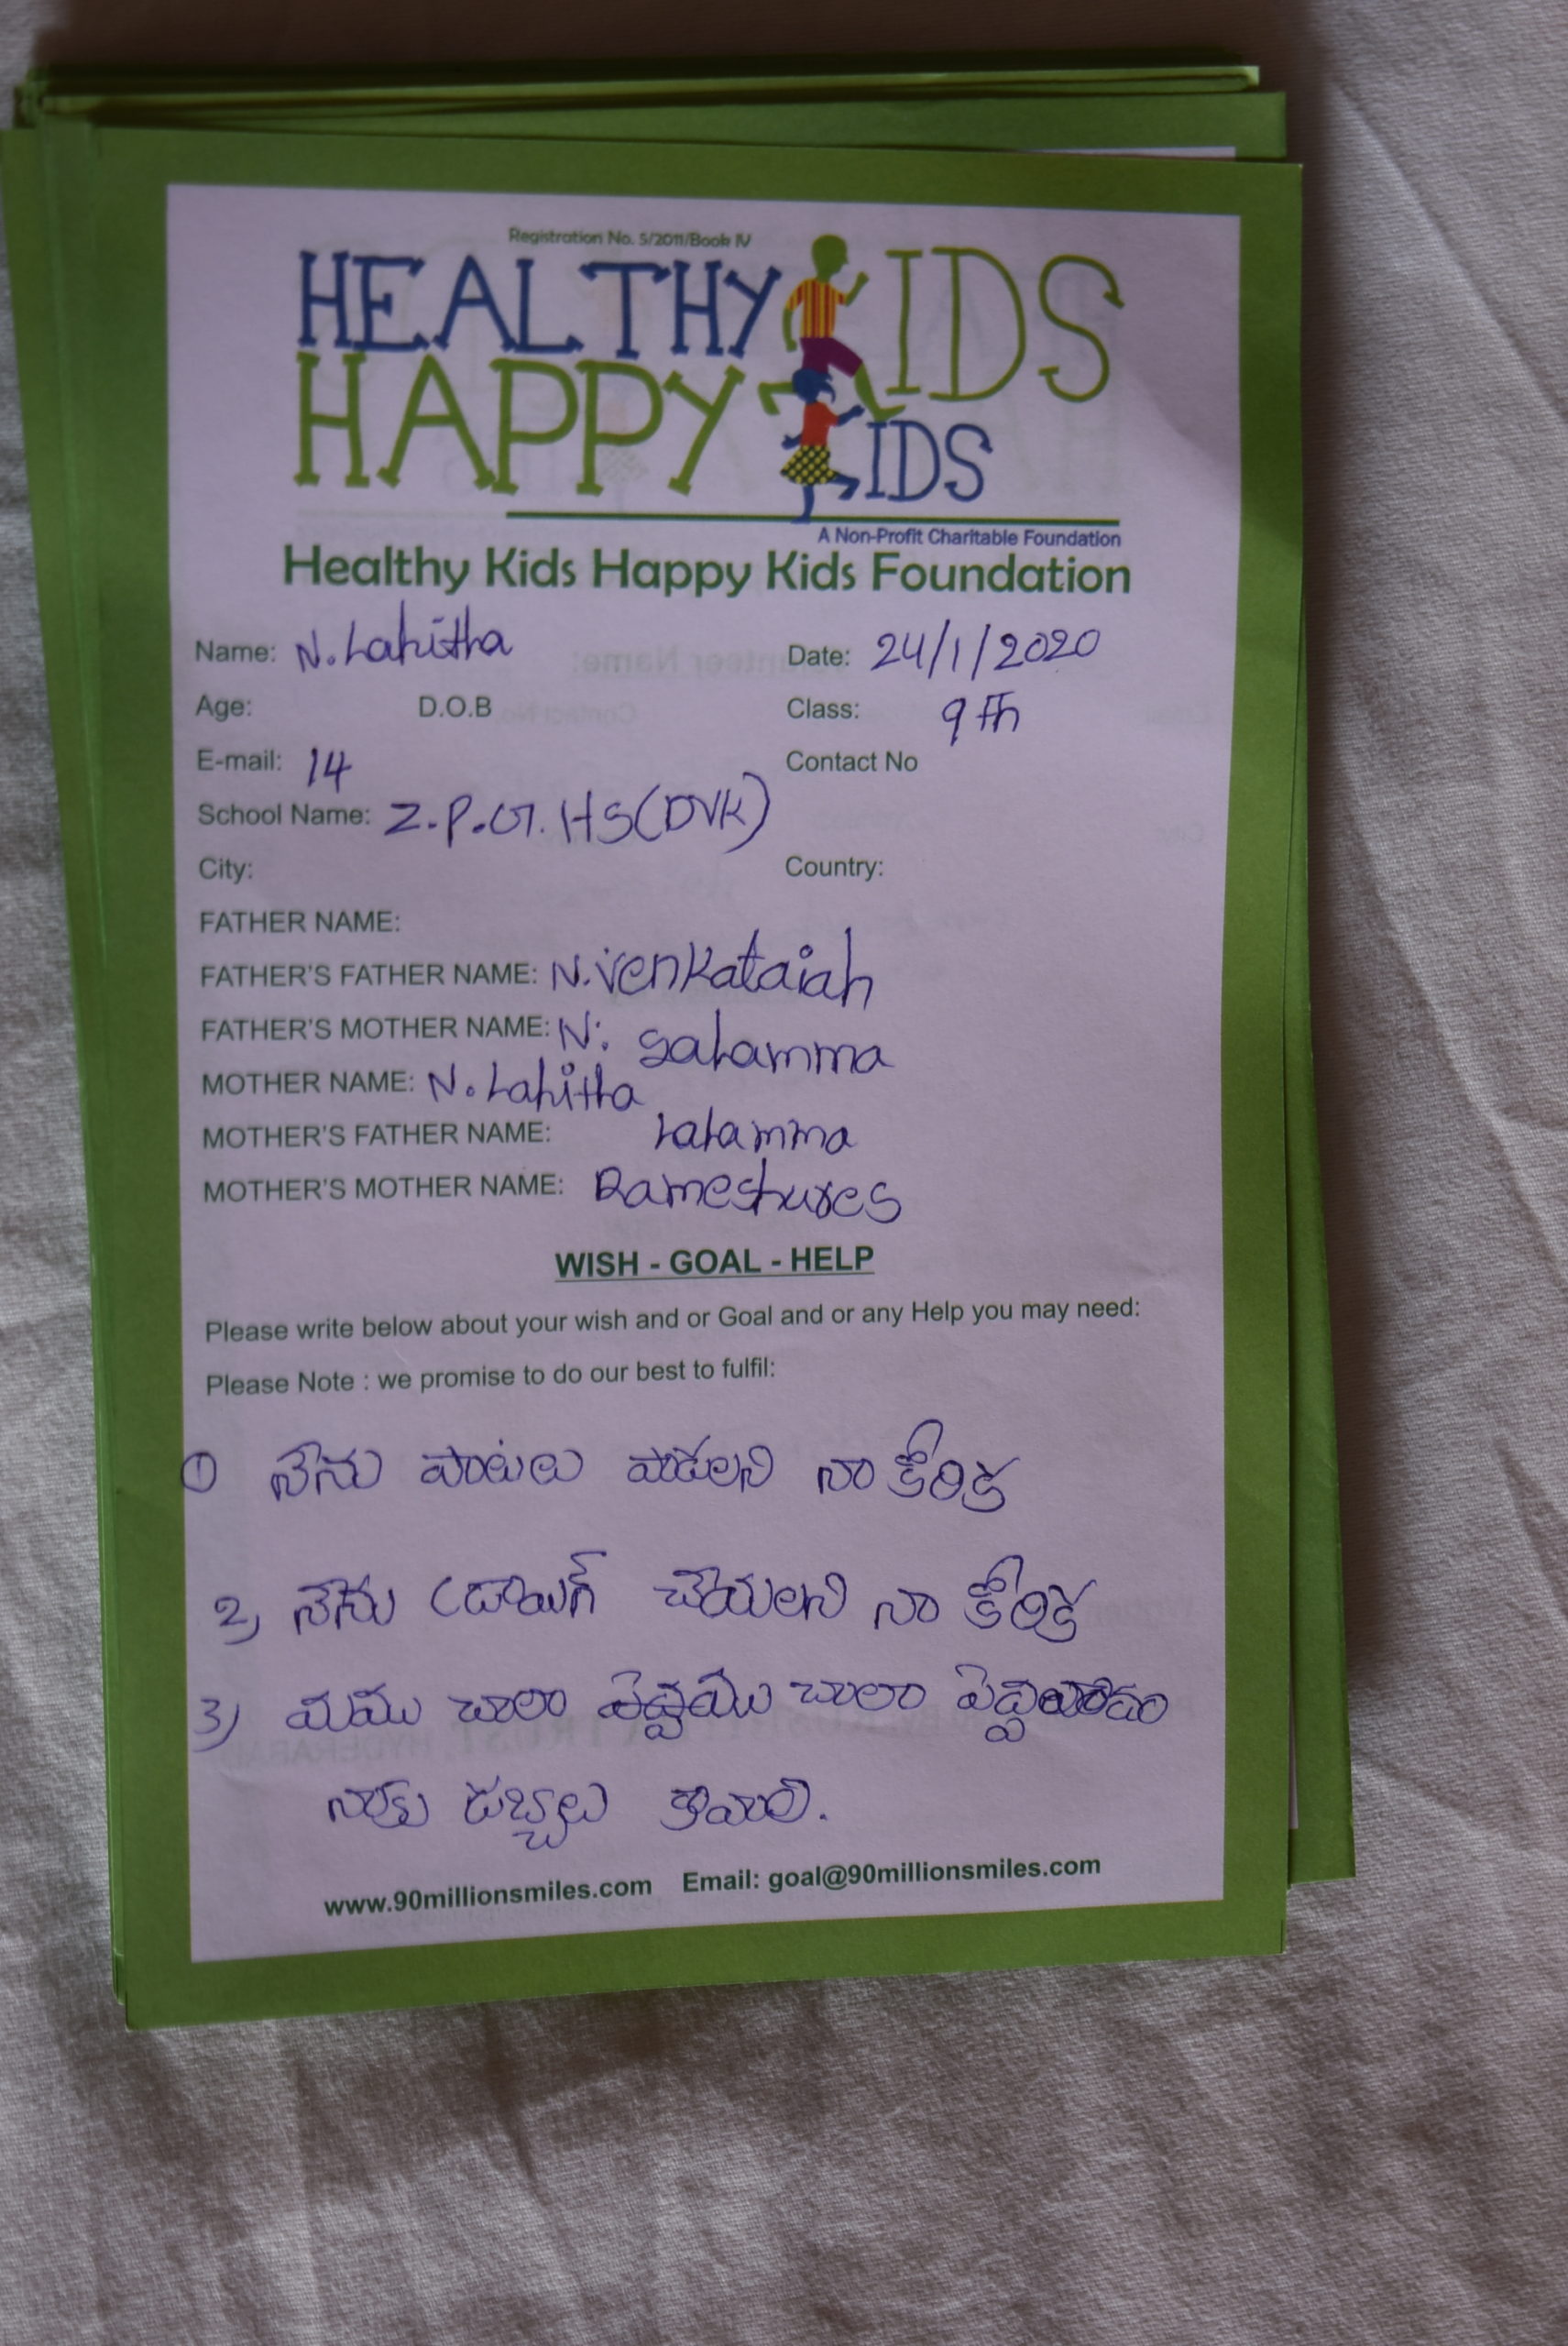 Registration No. 5/2011/Book IV
HEALTHY KIDS
HAPPY KIDS
A Non-Profit Charitable Foundation
Healthy Kids Happy Kids Foundation
Name: N. Lahitha Date: 24/1/2020
Age: D.O.B Class: 9th
E-mail: 14 Contact No
School Name: Z.P.G. HS(DVK)
City: Country:
FATHER NAME:
FATHER'S FATHER NAME: N. venkataiah
FATHER'S MOTHER NAME: N. salamma
MOTHER NAME: N. Lahitha
MOTHER'S FATHER NAME: lalamma
MOTHER'S MOTHER NAME:
WISH - GOAL - HELP
Please write below about your wish and or Goal and or any Help you may need:
Please Note : we promise to do our best to fulfil:
① నేను పాటలు పాడలని నా కోరిక
2) నేను డ్రాయిగ్ చేయలని నా కోరిక
3) మము చాలా చాలా
నాకు డబ్బులు కావాలి.
www.90millionsmiles.com Email: goal@90millionsmiles.com